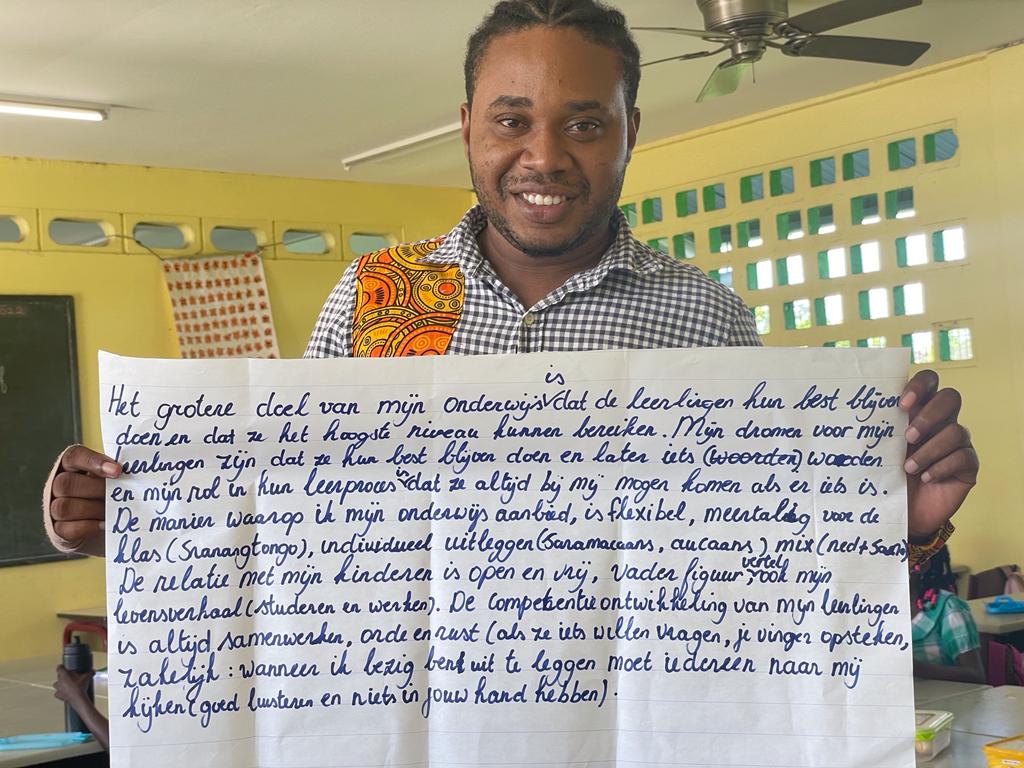 Het grotere doel van mijn onderwijs is dat de leerlingen hun best blijven
doen en dat ze het hoogste niveau kunnen bereiken. Mijn dromen voor mijn
leerlingen zijn dat ze hun best blijven doen en later iets (woorden) worden
en mijn rol in hun leerproces is dat ze altijd bij mij mogen komen als er iets is.
De manier waarop ik mijn onderwijs aanbied, is flexibel, meertalig voor de
klas (Sranangtongo), individueel uitleggen (Saramacaans, aucaans) mix (ned+
De relatie met mijn kinderen is open en vrij, vader figuur, vertel ook mijn
levensverhaal (studeren en werken). De competentie ontwikkeling van mijn leerlingen
is altijd samenwerken, orde en rust (als ze iets willen vragen, je vinger opsteken,
zakelijk: wanneer ik bezig bent uit te leggen moet iedereen naar mij
kijken (goed luisteren en niets in jouw hand hebben).